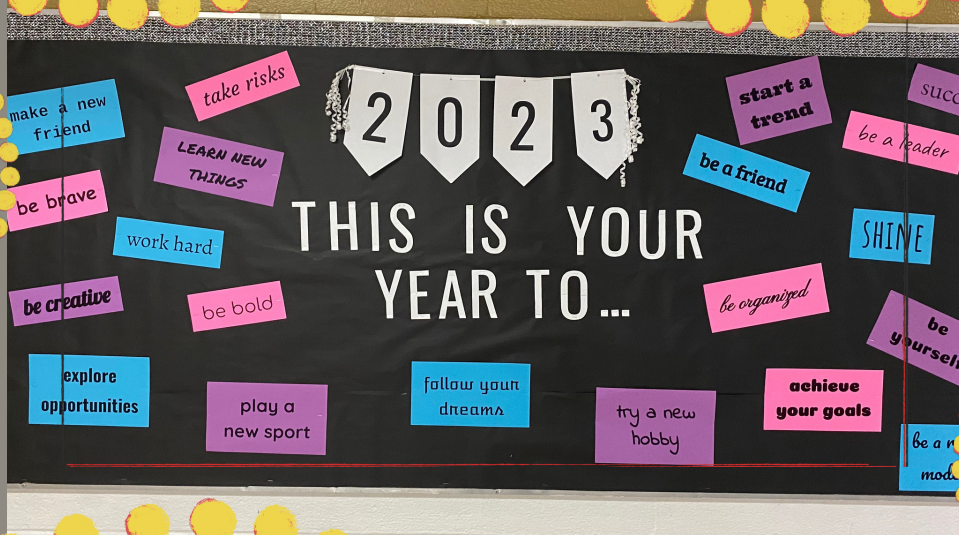 2023
THIS IS YOUR
YEAR TO...
make a new
friend
take risks
LEARN NEW
THINGS
be brave
work hard
be creative
be bold
explore
opportunities
play a
new sport
follow your
dreams
try a new
hobby
achieve
your goals
be organized
be a friend
start a
trend
be a leader
SHINE
be
yourself
be a